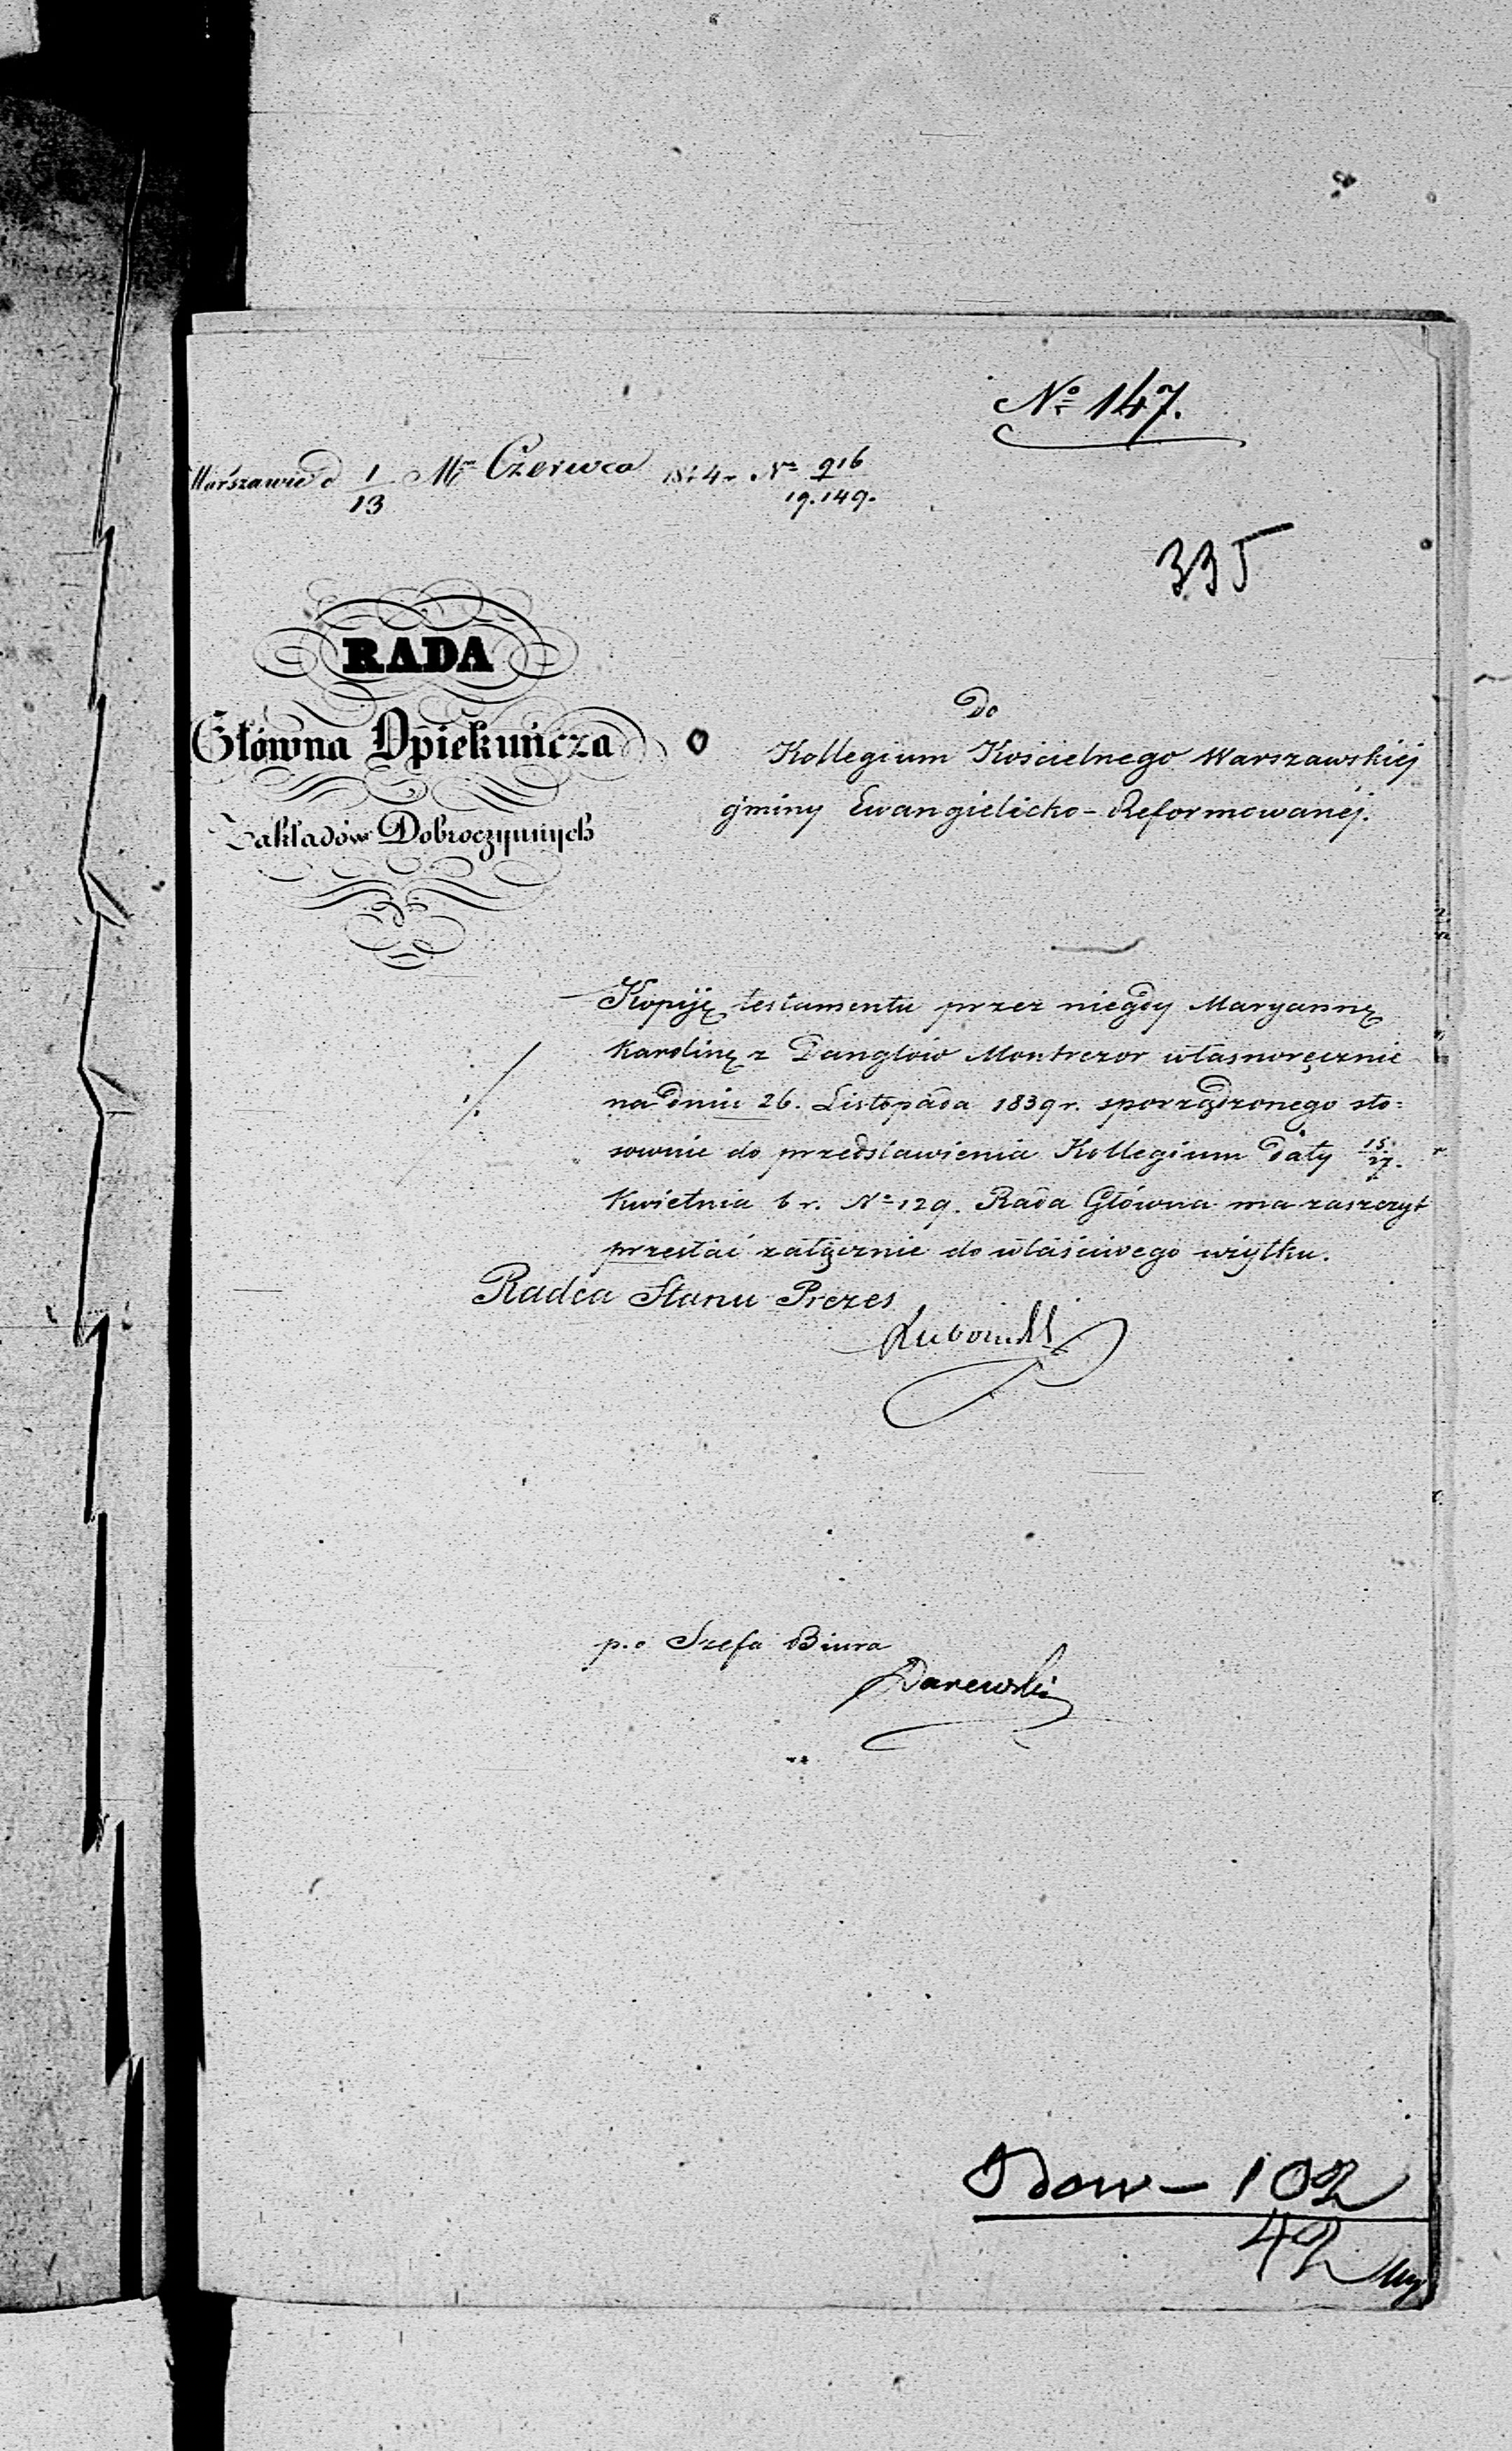 No 147.
Warszawie d 1/13 Mca Czerwca 1844 r. No 916/19.149.
335
RADA
Główna Opiekuńcza
Zakładów Dobroczynnych
Do
Kollegium Kościelnego Warszawskiéj
gminy Ewangielicko-Reformowanéj.
Kopiję testamentu przez niegdy Maryannę
Karolinę z Danglów Montrezor własnoręcznie
na dniu 26. Listopada 1839 r. sporządzonego sto=
sownie do przedstawienia Kollegium daty 15/27.
Kwietnia b r. No 129. Rada Główna ma zaszczyt
przesłać załącznie do właściwego użytku.
Radca Stanu Prezes
Lubowidzki
p.o Szefa Biura
Darewski
Odow – 102
42